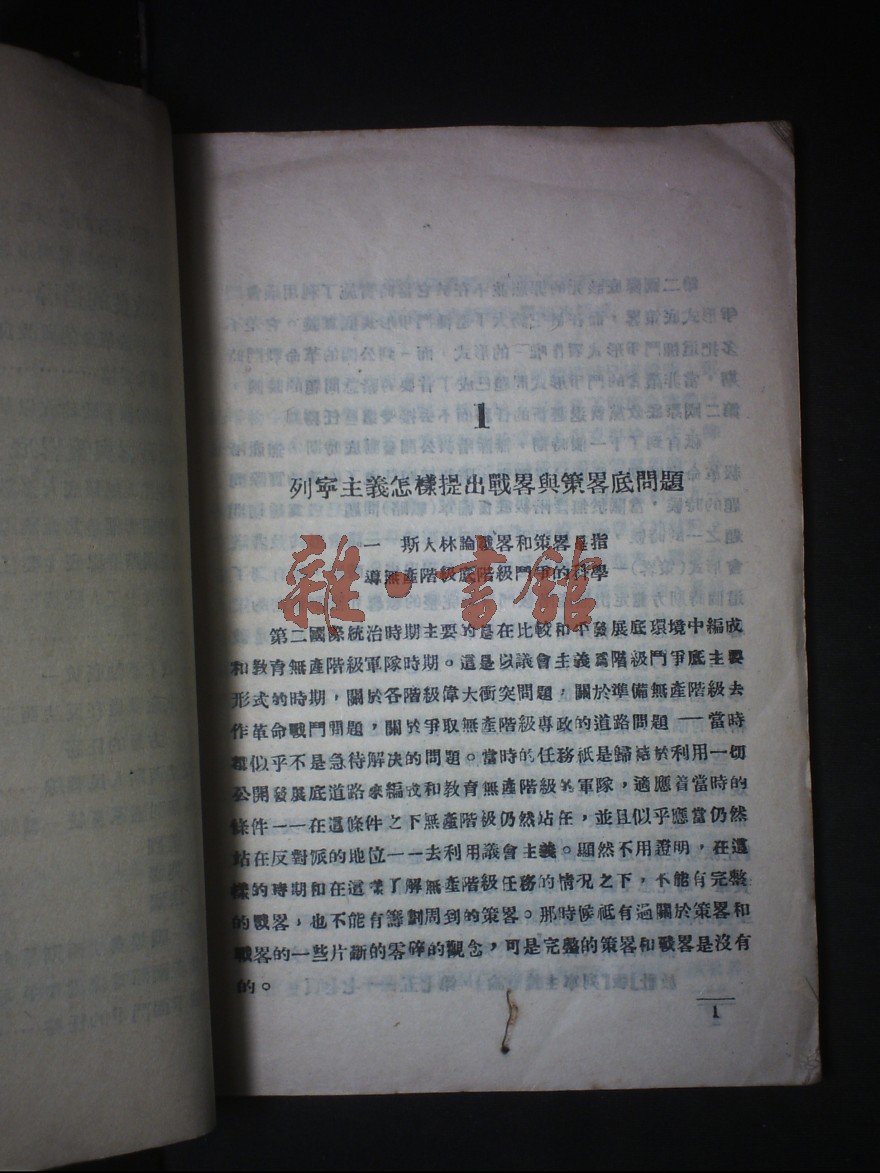 1
列寧主義怎樣提出戰畧與策畧底問題
一 斯大林論戰畧和策畧是指
導無產階級底階級鬥爭的科學
第二國際統治時期主要的是在比較和平發展底環境中編成
和教育無產階級軍隊時期。這是以議會主義爲階級鬥爭底主要
形式的時期，關於各階級偉大衝突問題，關於準備無產階級去
作革命戰鬥問題，關於爭取無產階級專政的道路問題——當時
都似乎不是急待解決的問題。當時的任務祇是歸結於利用一切
公開發展底道路來編成和教育無產階級的軍隊，適應着當時的
條件——在這條件之下無產階級仍然站在，並且似乎應當仍然
站在反對派的地位——去利用議會主義。顯然不用證明，在這
樣的時期和在這樣了解無產階級任務的情況之下，不能有完整
的戰畧，也不能有籌劃周到的策畧。那時候祇有過關於策畧和
戰畧的一些片斷的零碎的觀念，可是完整的策畧和戰畧是沒有
的。
1
雜·書館